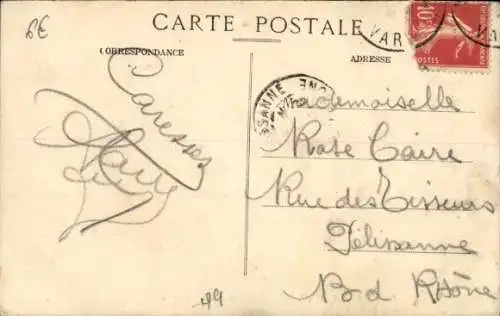 CARTE POSTALE
CORRESPONDANCE
ADRESSE
VAR
VAR
POSTES
Caresses
Marie
Mademoiselle
Rose Caire
Rue des Tisseurs
Pélissanne
Bd Rhône